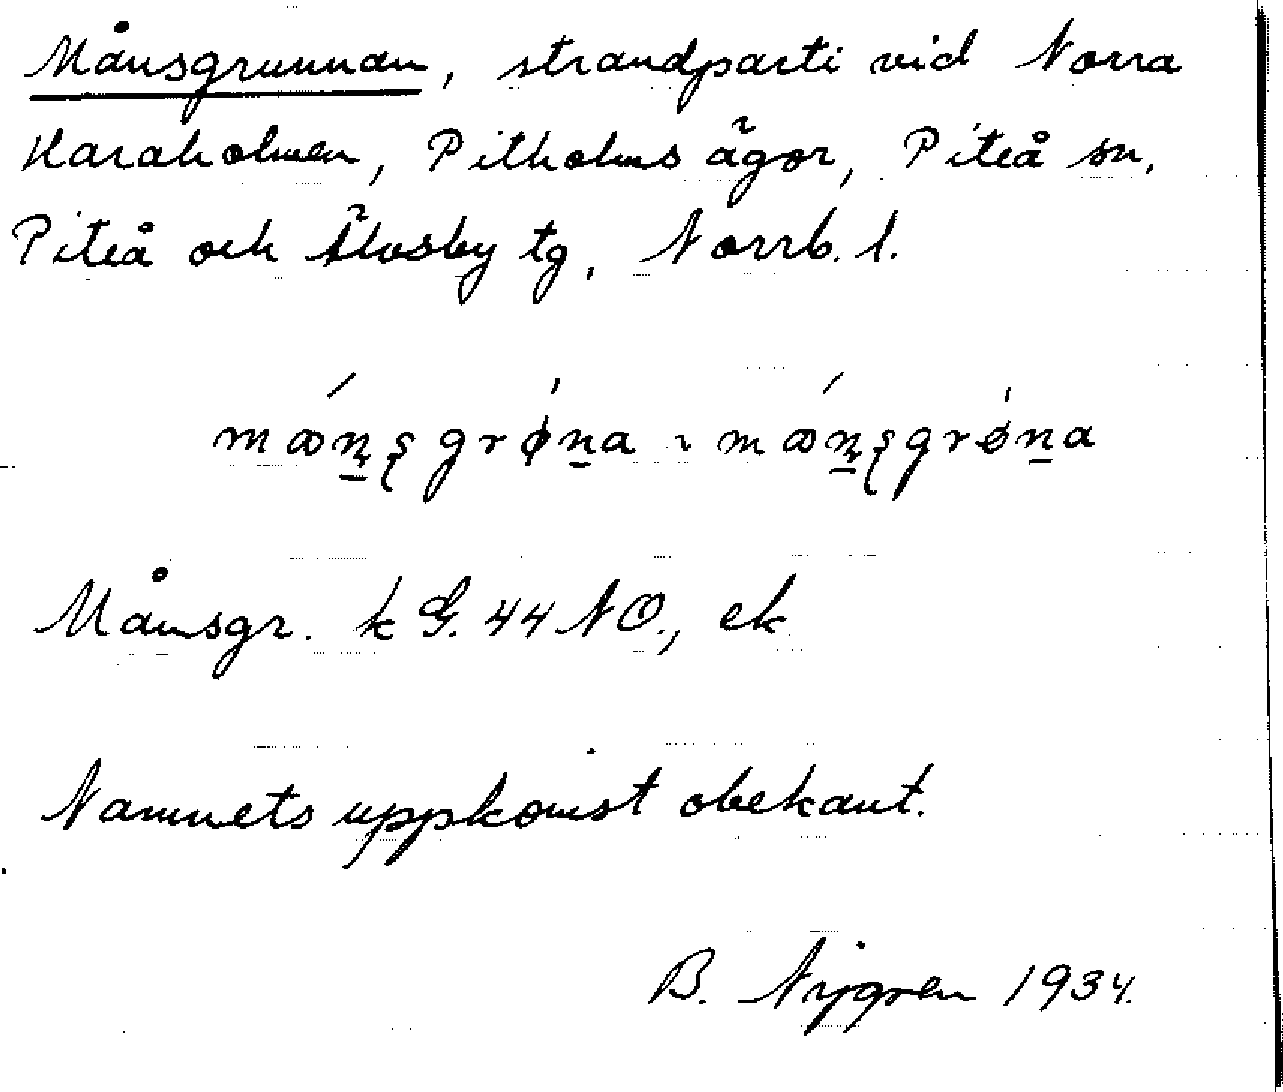 Månsgrunnan, strandparti vid Norra
Haraholmen, Pitholms ägor, Piteå sn,
Piteå och Älvsby tg, Norrb. l.
Månsgr. k G. 44 NO., ek
Namnets uppkomst obekant.
B. Nygren 1934.